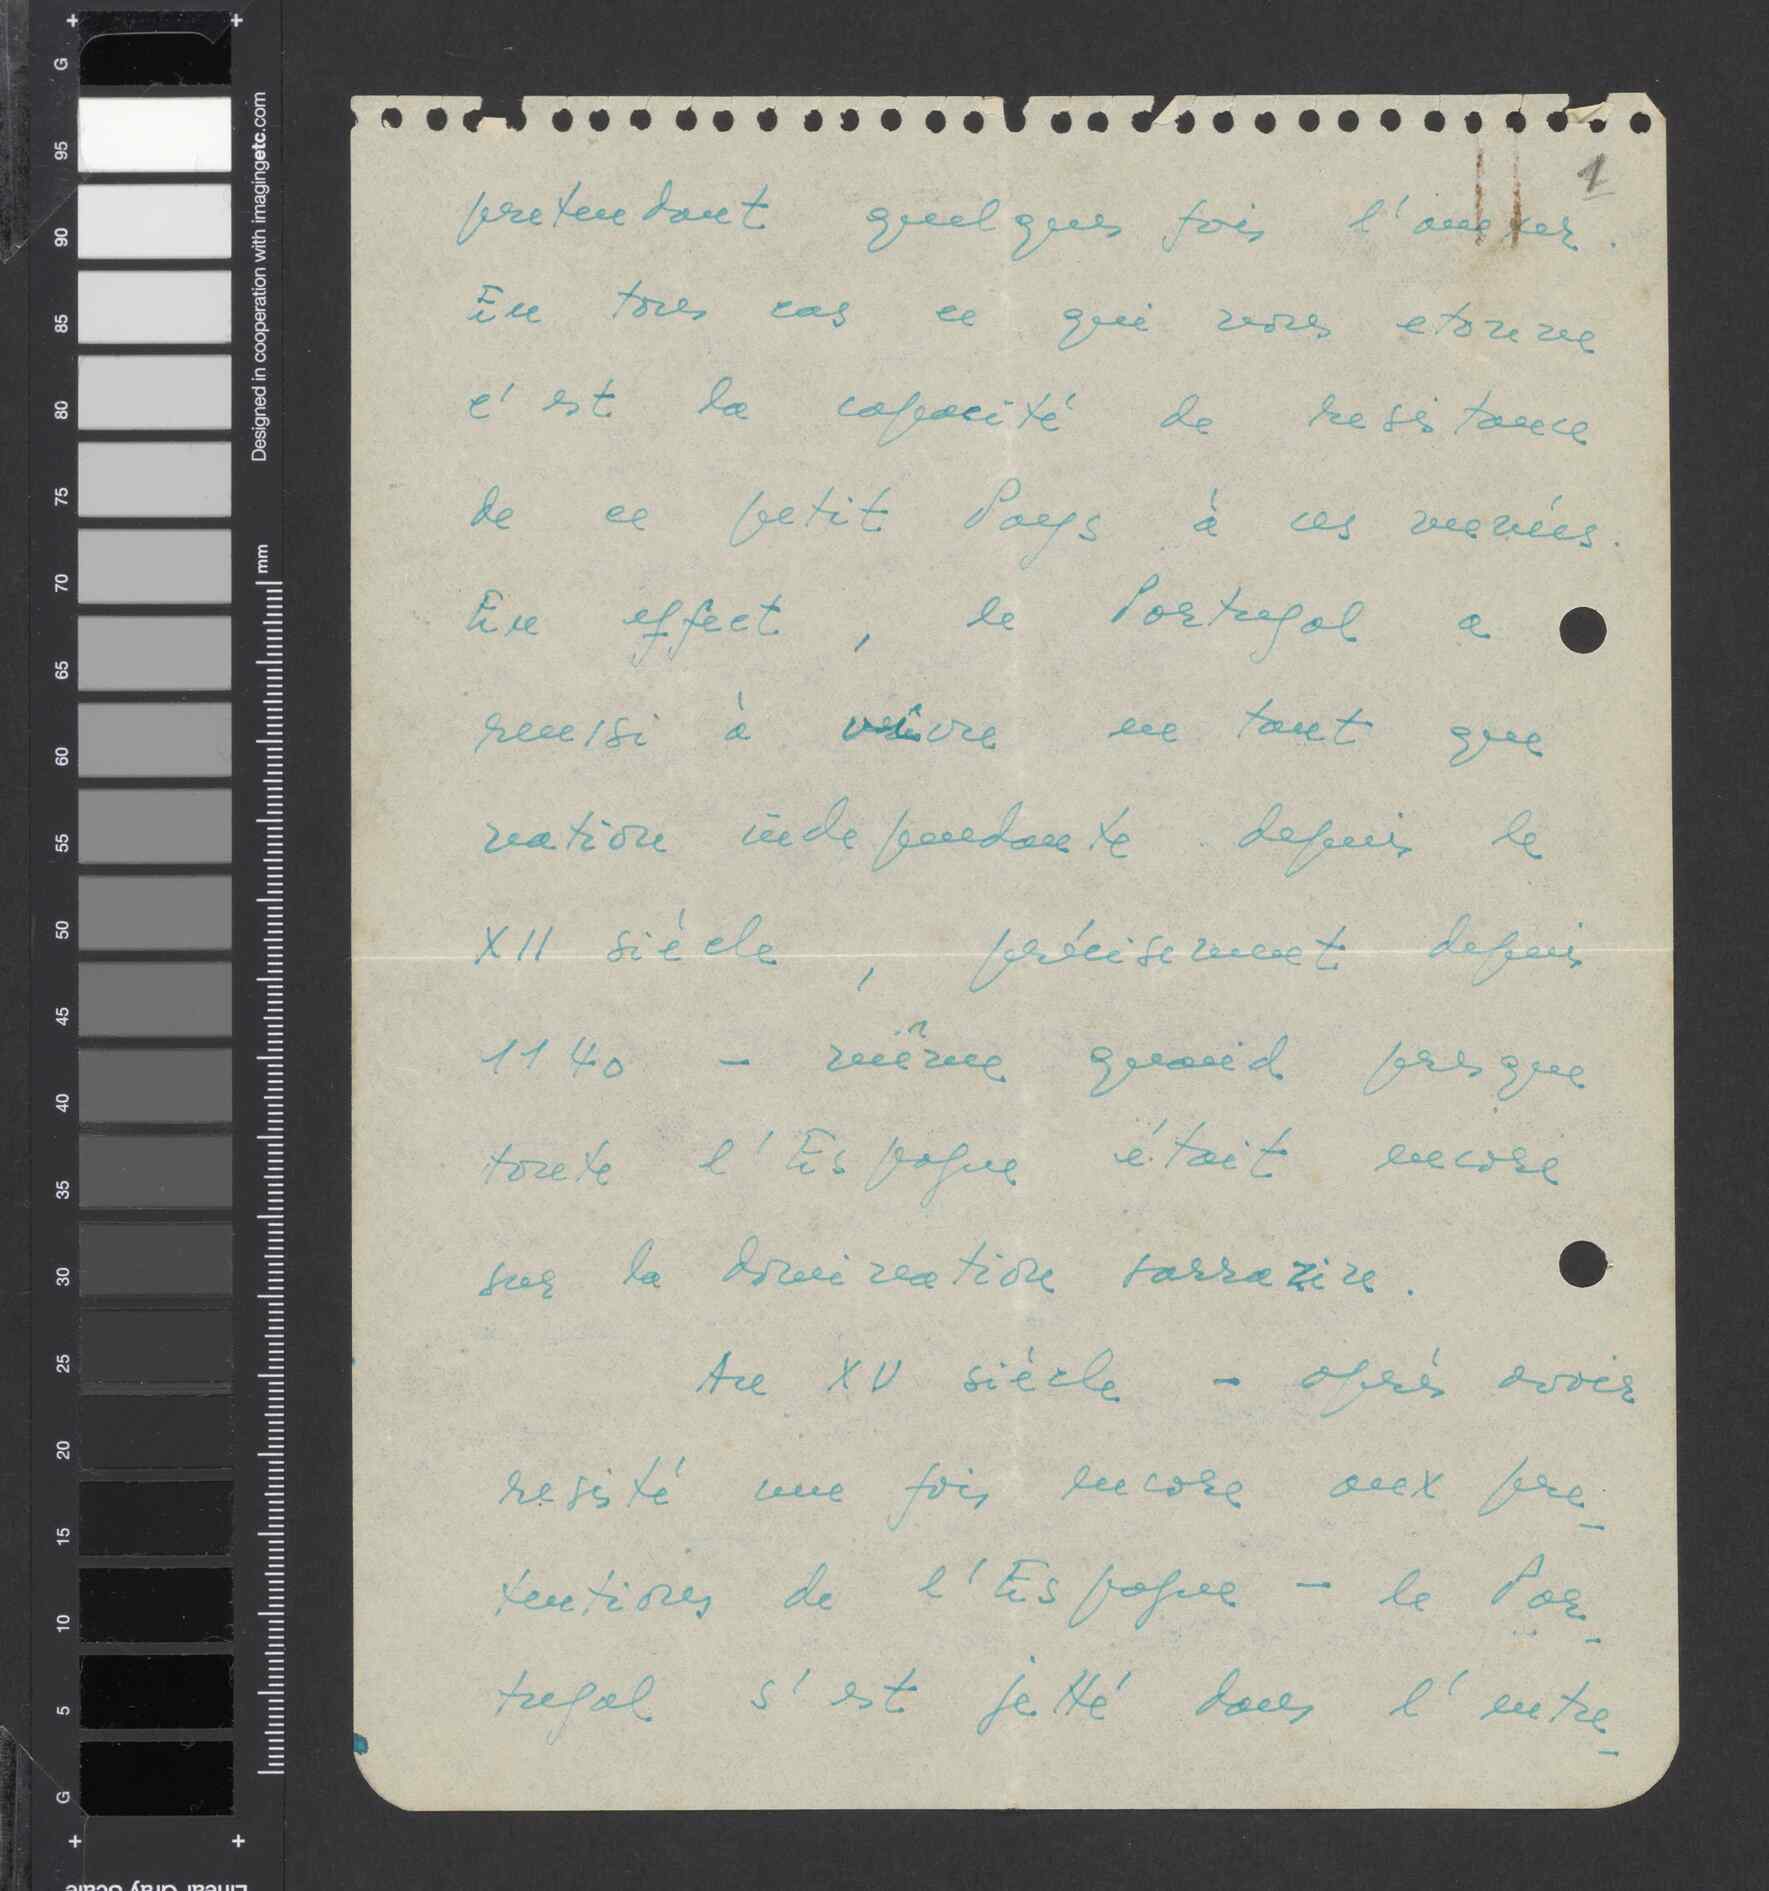 G
95
90
85
80
75
70
65
60
55
50
45
40
35
30
25
20
15
10
5
G
Designed in cooperation with imagingetc.com
mm
1
pretendant quelques fois l'anexer.
En tous cas ce qui nous etonne
c'est la capacité de resistance
de ce petit Pays à ces menées.
En effect, le Portugal a
reussi à vivre en tant que
nation independante depuis le
XII siécle, précisement depuis
1140 - même quand presque
toute l'Espagne était encore
sur la domination sarrazine.
Au XV siècle - après avoir
resisté une fois encore aux pre-
tentions de l'Espagne - le Por-
tugal s'est jetté dans l'entre-